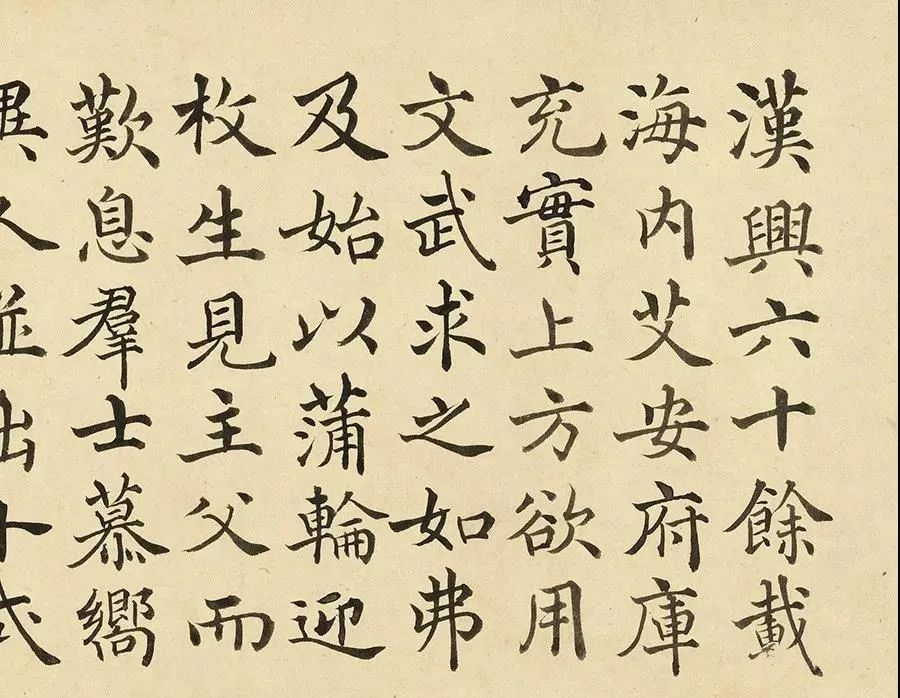 漢興六十餘載
海内艾安府庫
充實上方欲用
文武求之如弗
及始以蒲輪迎
枚生見主父而
歎息羣士慕嚮
異人並出卜式